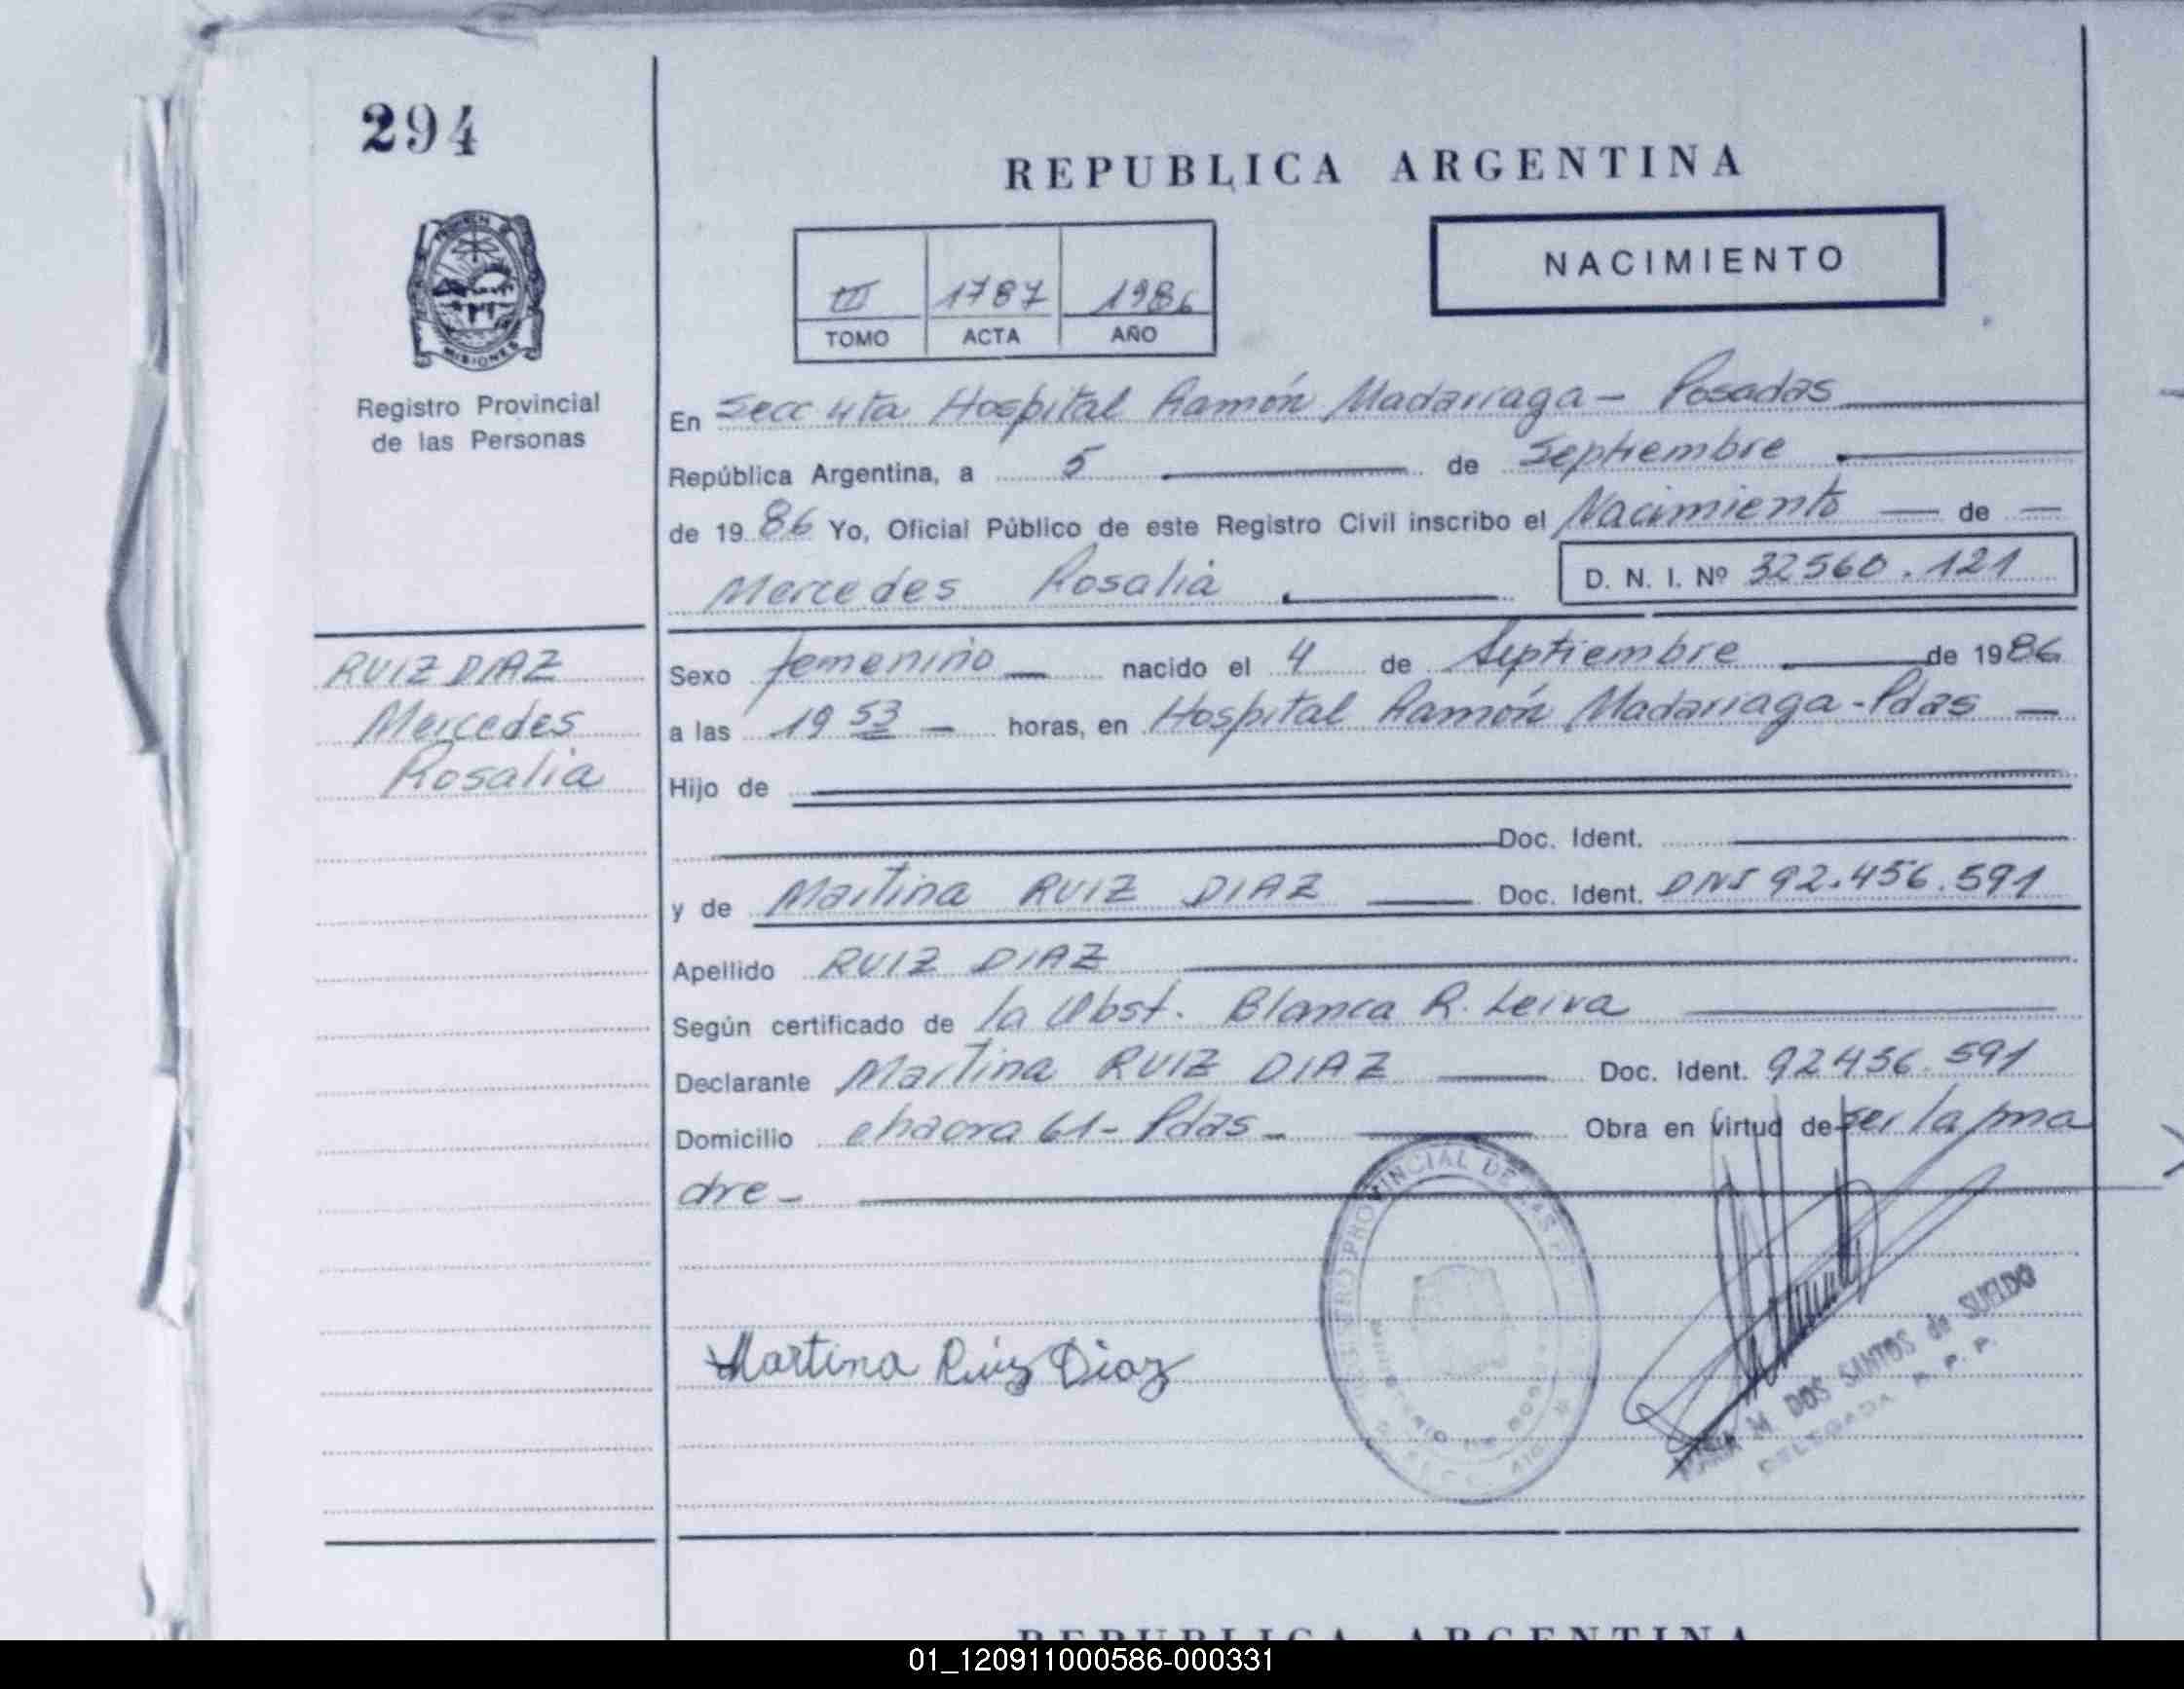 294
REPUBLICA ARGENTINA
NACIMIENTO
III 1787 1986
TOMO ACTA AÑO
MISIONES
Registro Provincial
de las Personas
En Secc 4ta Hospital Ramón Madariaga - Posadas
República Argentina, a 5 de Septiembre
de 1986 Yo, Oficial Público de este Registro Civil inscribo el Nacimiento — de —
Mercedes Rosalia
D. N. I. Nº 32560.121
RUIZ DIAZ
Mercedes
Rosalia
Sexo femenino — nacido el 4 de Septiembre de 1986
a las 19 53 — horas, en Hospital Ramón Madariaga - Pdas —
Hijo de
Doc. Ident.
y de Martina RUIZ DIAZ — Doc. Ident. DNI 92.456.591
Apellido RUIZ DIAZ
Según certificado de la Obst. Blanca R. Leiva
Declarante Martina RUIZ DIAZ — Doc. Ident. 92456.591
Domicilio chacra 61 - Pdas - Obra en virtud de ser la ma
dre -
REGISTRO PROVINCIAL DE LAS
Martina Ruiz Diaz
M. DOS SANTOS de SUELDO
DELEGADA R. P. P.
REPUBLICA ARGENTINA
01_120911000586-000331